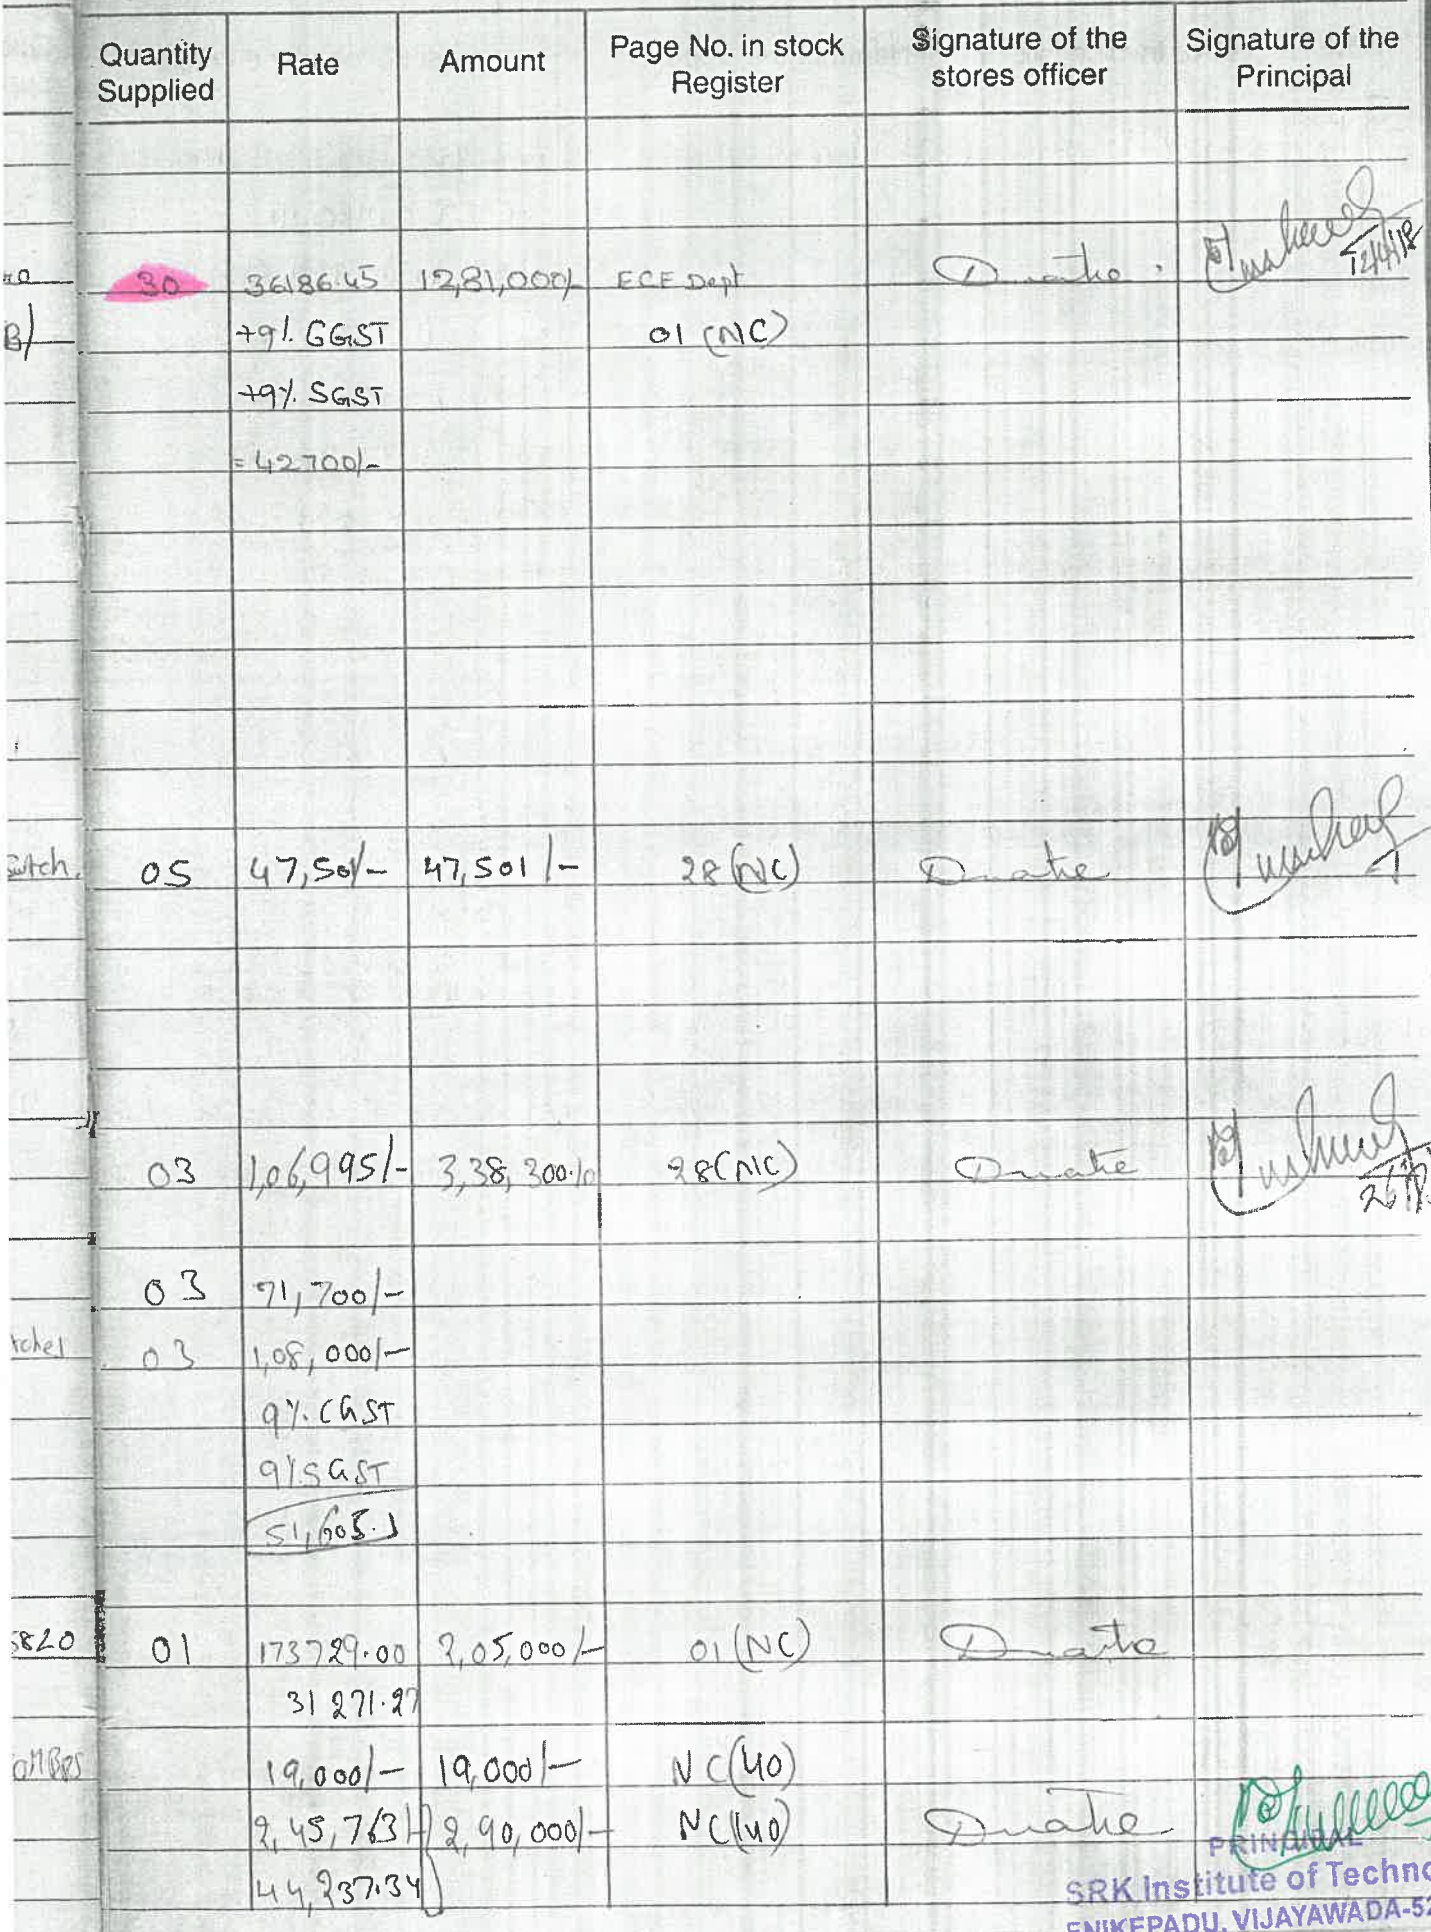 Quantity Supplied Rate Amount Page No. in stock Register Signature of the stores officer Signature of the Principal
30 36186.45 12,81,000/- ECE Dept
12/4/18
B/ +9%. GGST 01 (NC)
+9%. SGST
=42700/-
05 47,501/- 47,501/- 28 (NC)
03 1,06,995/- 3,38,300.10 28(NC)
03 71,700/-
tches 03 1,08,000/-
9%. CGST
9% SGST
51,605.1
5820 01 173729.00 2,05,000/- 01 (NC)
31271.27
MBPS 19,000/- 19,000/- NC(40)
2,45,763/- 2,90,000/- NC(40)
44,237.34
PRINCIPAL
SRK Institute of Techno
ENIKEPADU, VIJAYAWADA-52